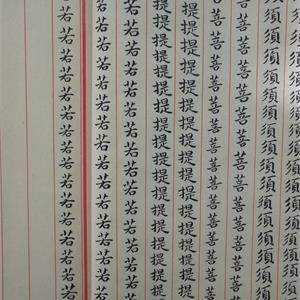 須須須須須須須須須須須須須須須須須
須須須須須須須須須須須須須須須須須
菩菩菩菩菩菩菩菩菩菩菩菩菩菩菩菩菩
菩菩菩菩菩菩菩菩菩菩菩菩菩菩菩菩菩
提提提提提提提提提提提提提提提提提
提提提提提提提提提提提提提提提提提
若若若若若若若若若若若若若若若若若
若若若若若若若若若若若若若若若若若
若若若若若若若若若若若若若若若若